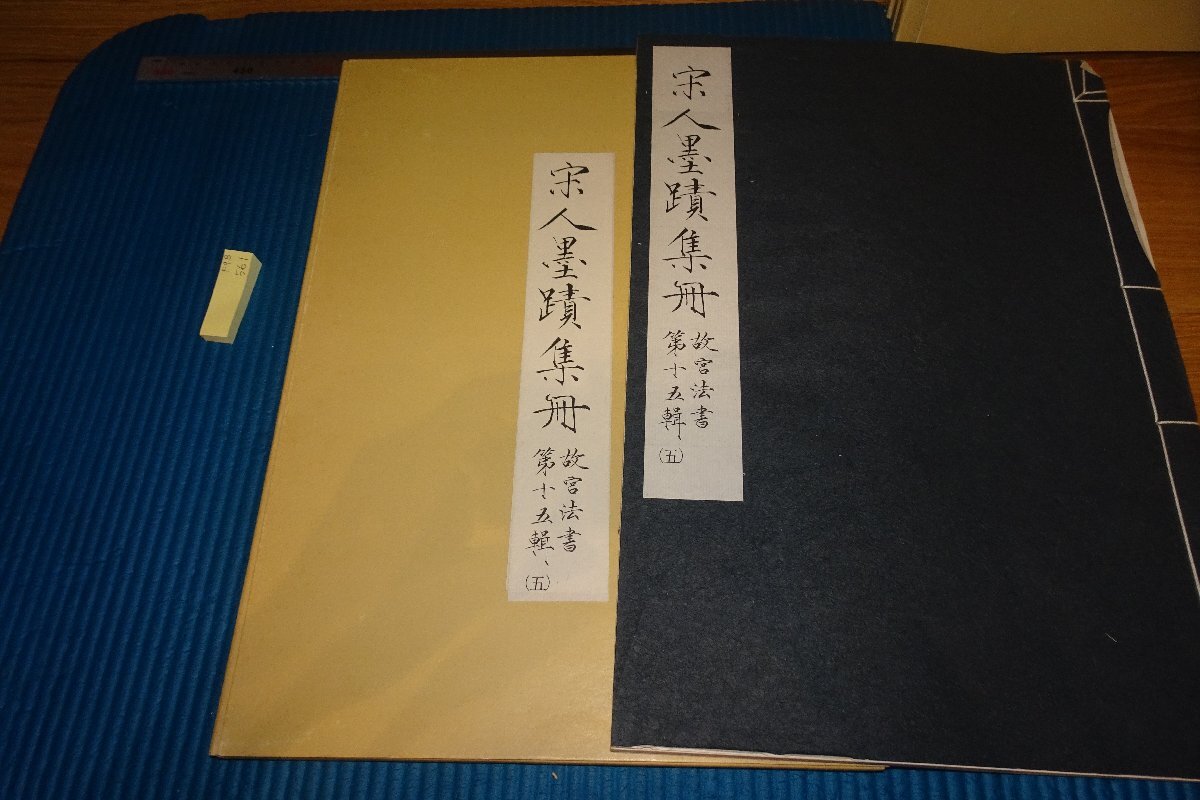 宋人墨蹟集冊
故宮法書
第十五輯
(五)
宋人墨蹟集冊
故宮法書
第十五輯
(五)
195